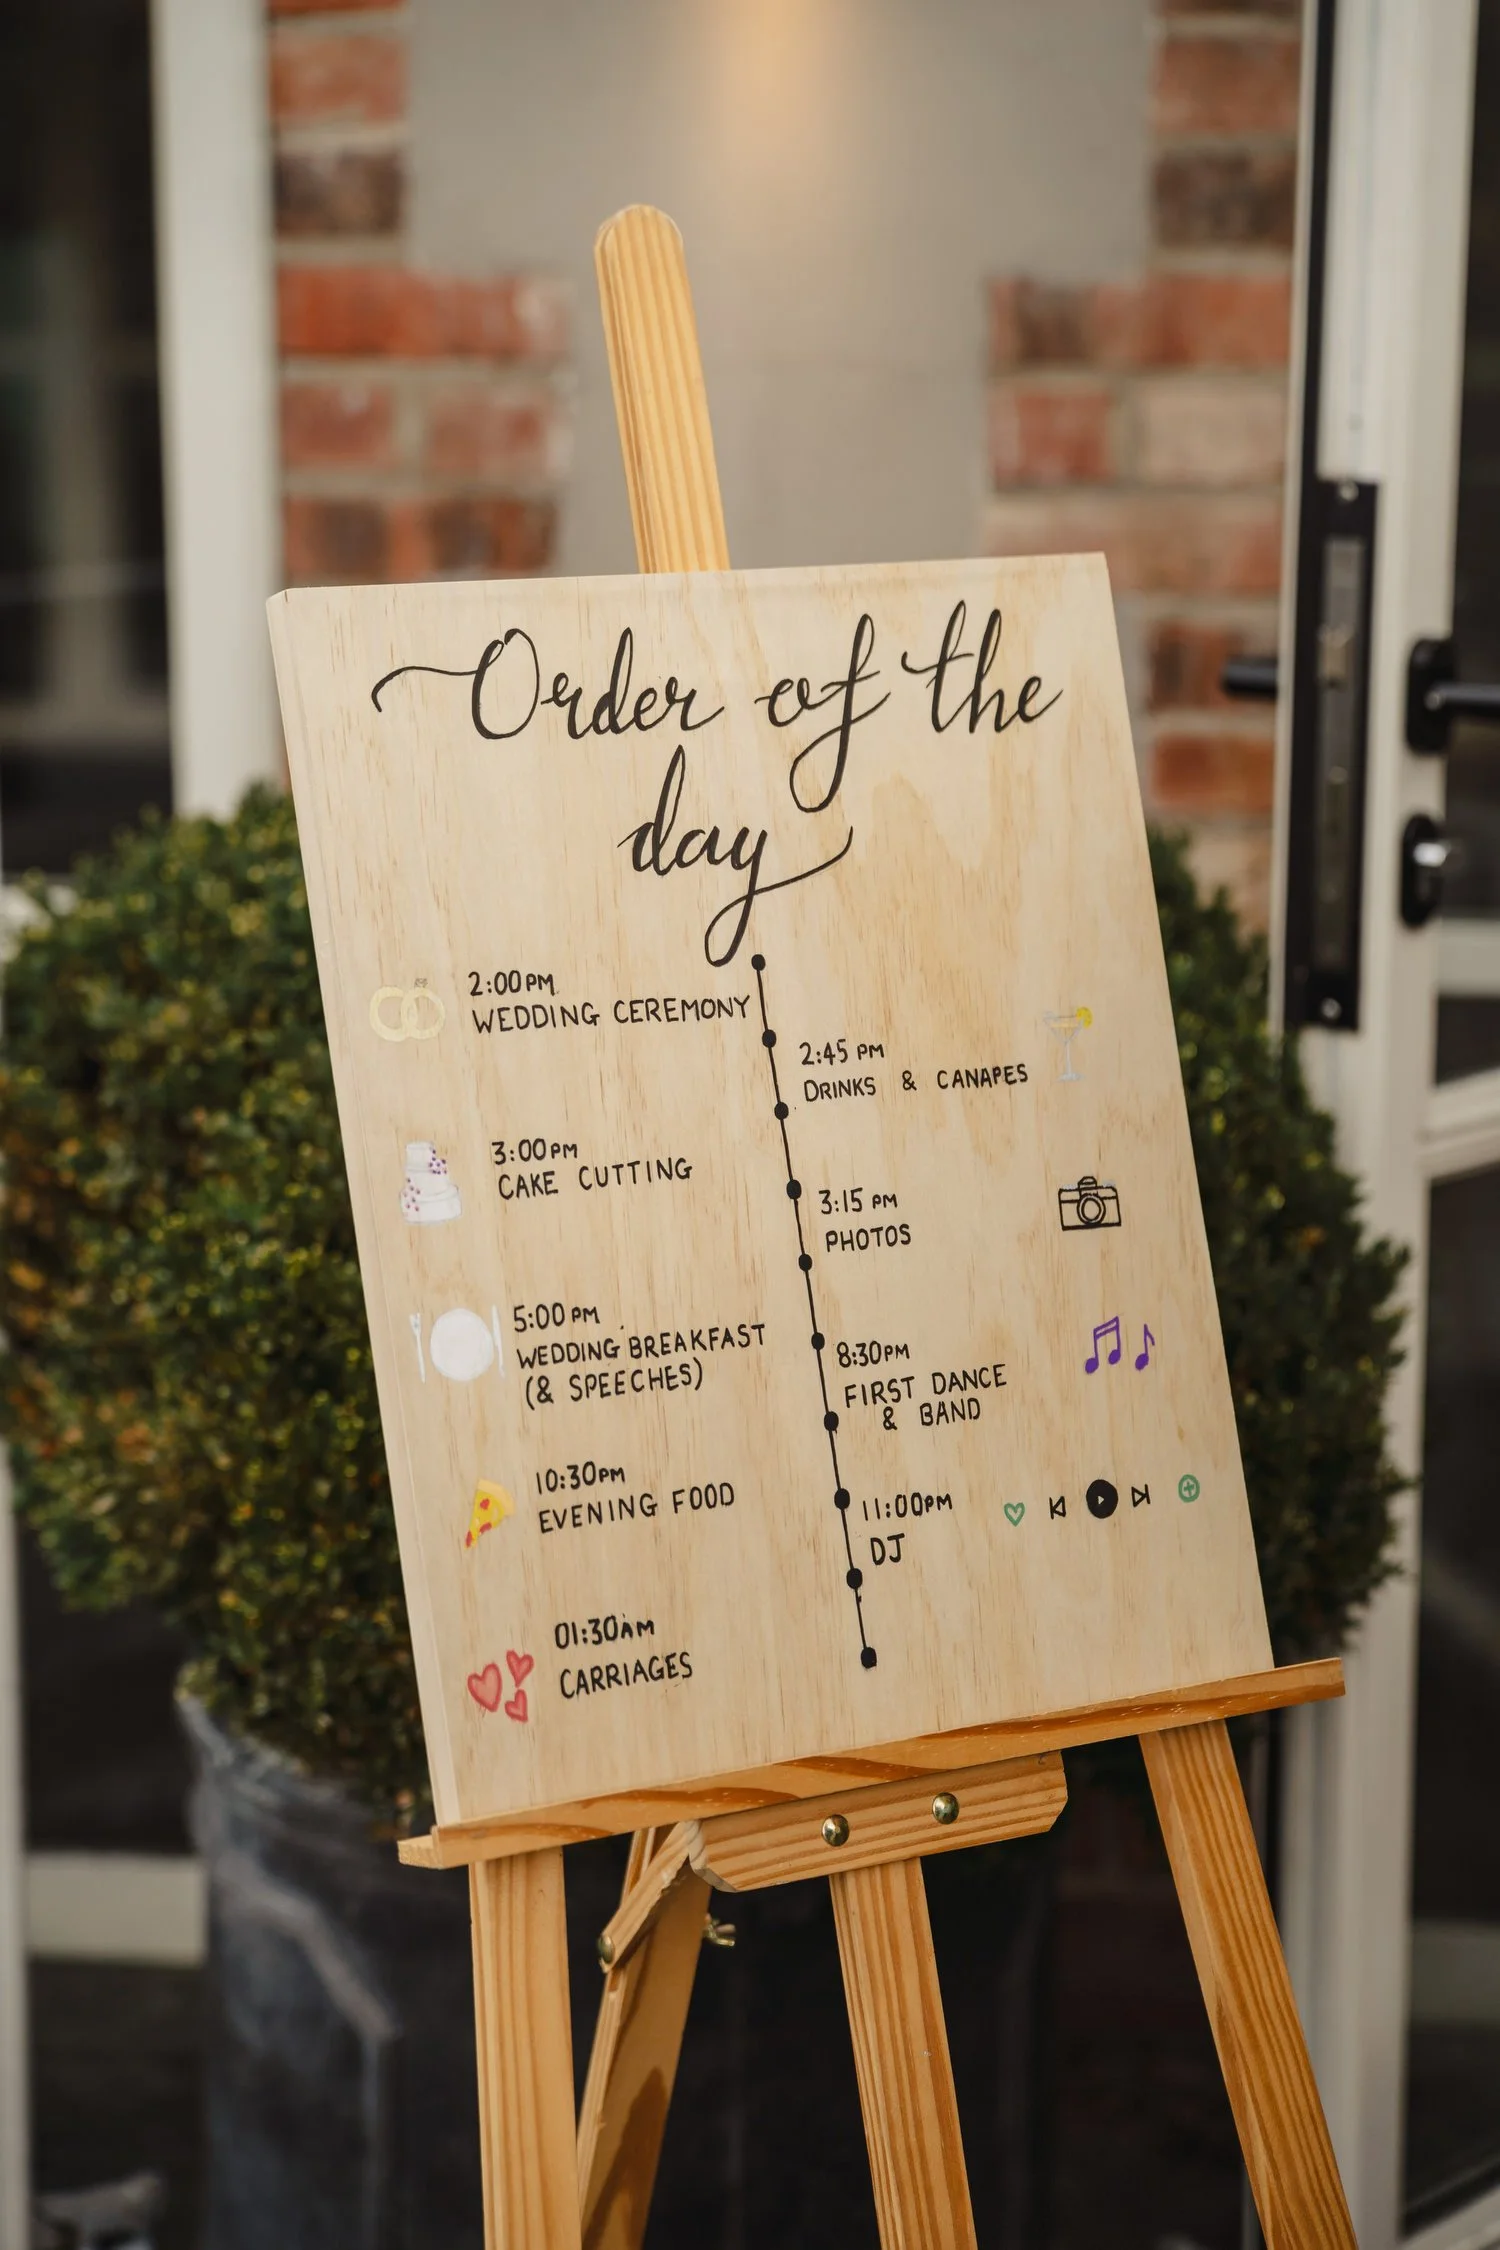 Order of the
day
2:00PM
WEDDING CEREMONY
2:45 PM
DRINKS & CANAPES
3:00PM
CAKE CUTTING
3:15 PM
PHOTOS
5:00PM
WEDDING BREAKFAST
(& SPEECHES)
8:30PM
FIRST DANCE
& BAND
10:30PM
EVENING FOOD
11:00PM
DJ
01:30AM
CARRIAGES